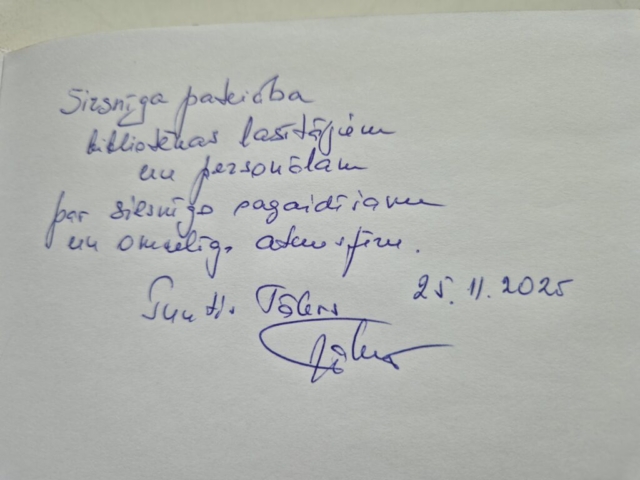 Sirsnīga pateicība
bibliotēkas lasītājiem
un personālam
par sirsnīgo sagaidīšanu
un omulīgo atmosfēru.
Guntis Tālers 25.11.2025